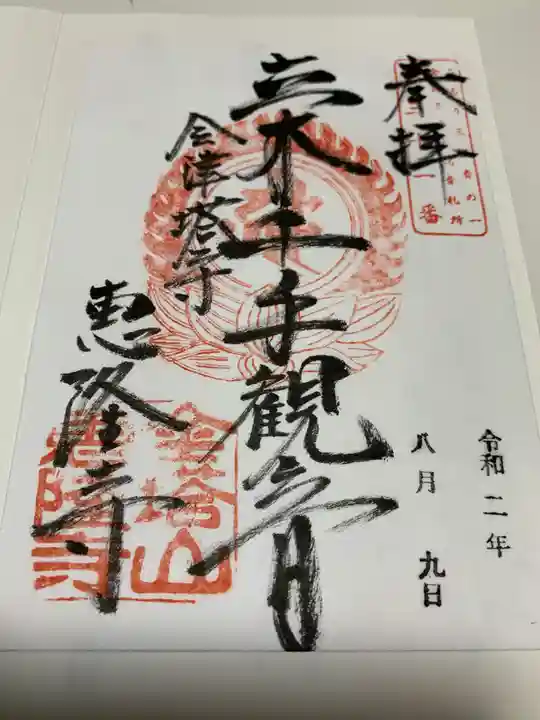 奉拝
令和二年
八月 九日
立木千手観音
会津塔寺
恵隆寺
一番